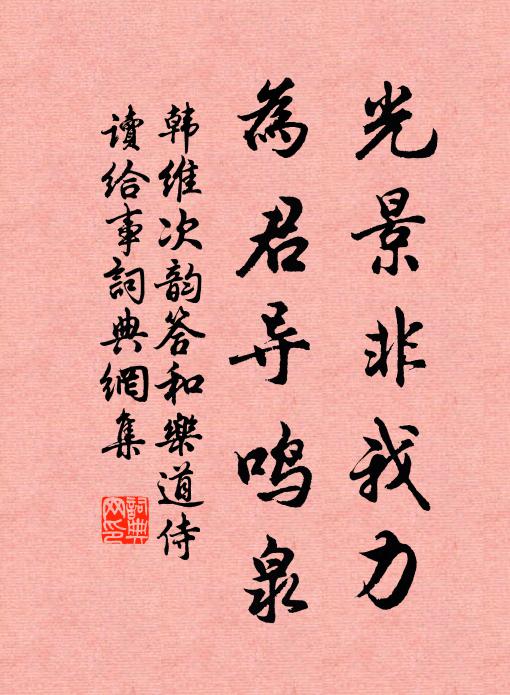 光景非我力
為君导鸣泉
韩维次韵答和樂道侍
读给事詞典網集
詞典网印